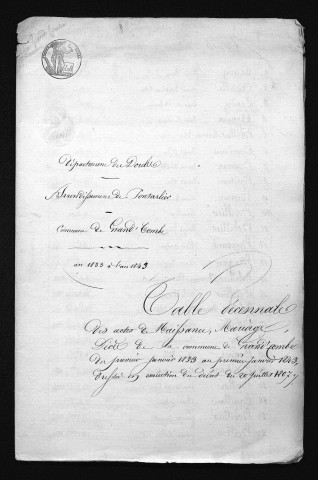 Département du Doubs
Arrondissement de Pontarlier
Commune de Grand'Combe
an 1833 à l'an 1843
Table décennale
des actes de Naissance, Mariage,
Décès de la commune de Grand'combe
du premier janvier 1833 au premier janvier 1843,
dressée en exécution du décret du 20 juillet 1807